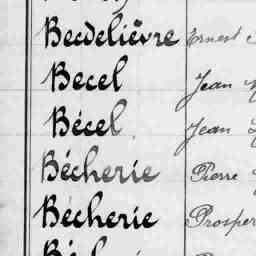 Becdelièvre Ernest
Becel Jean
Bécel Jean
Bécherie Pierre
Bécherie Prosper